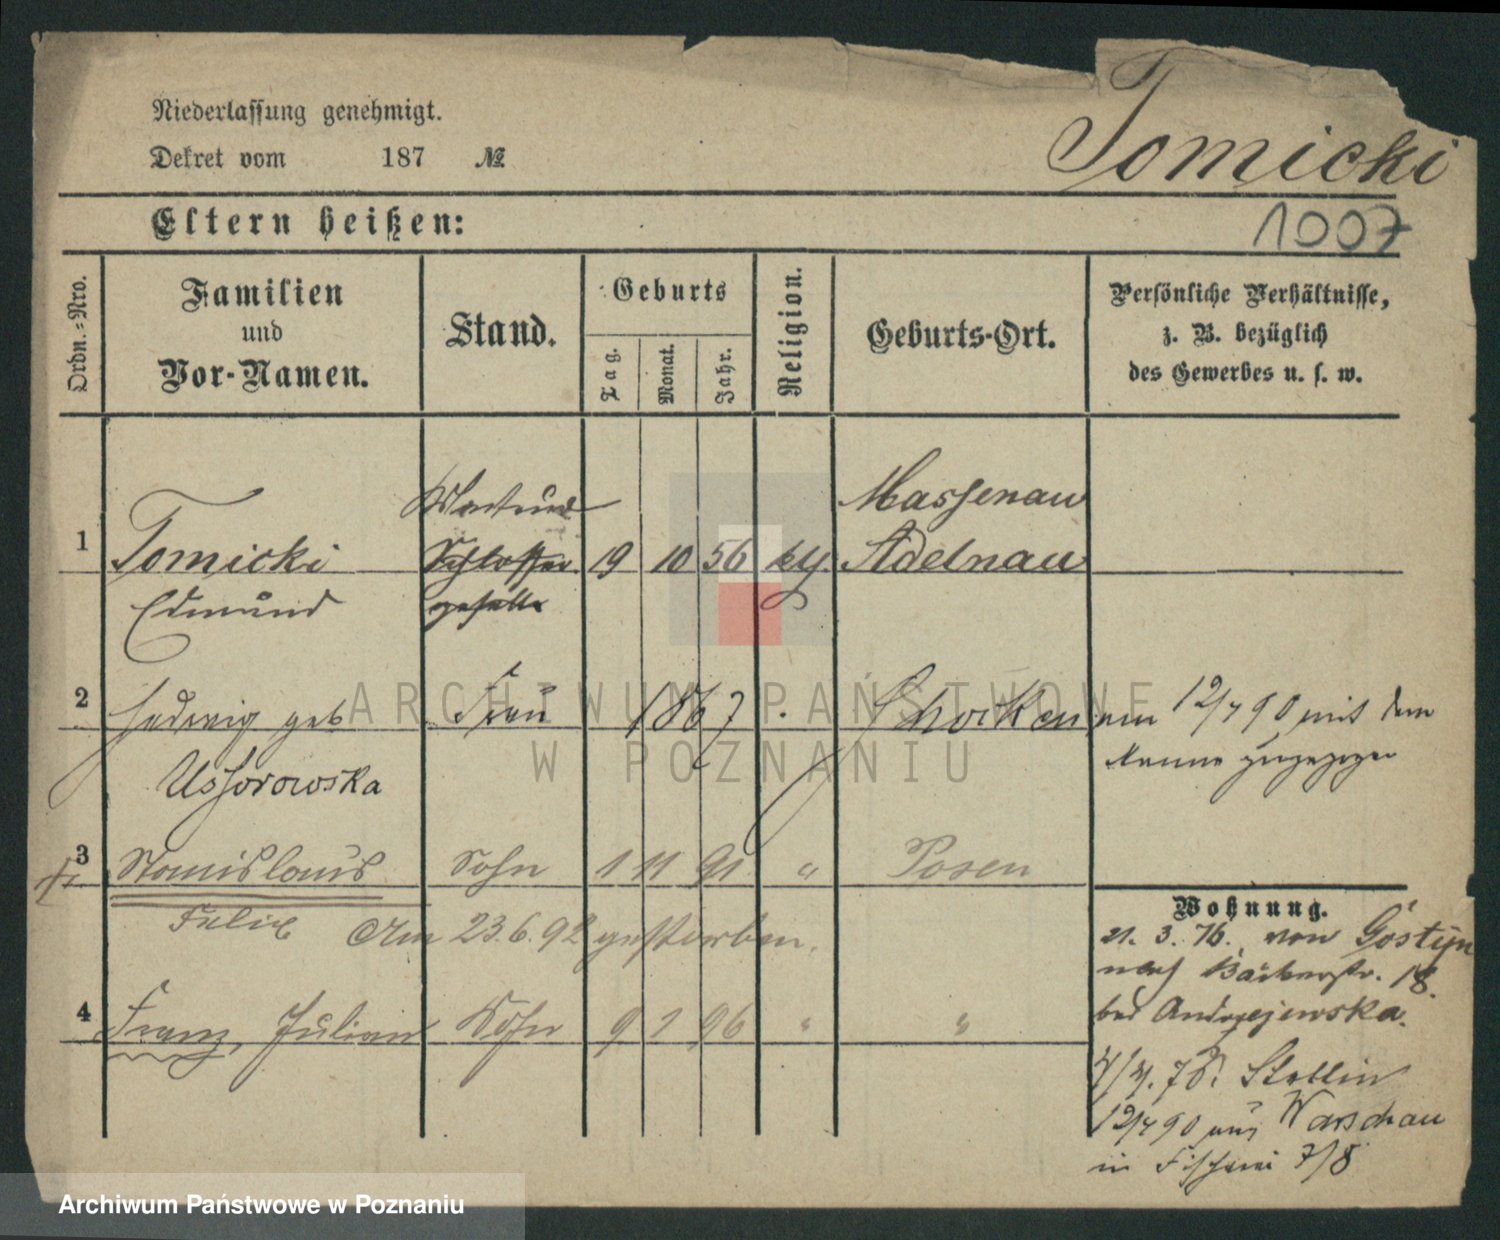 Niederlassung genehmigt.
Dekret vom 187 №
Tomicki
1007
Eltern heißen:
Ordn.-Nro.
Familien
und
Vor-Namen.
Stand.
Geburts
Tag.
Monat.
Jahr.
Religion.
Geburts-Ort.
Persönliche Verhältnisse,
z. B. bezüglich
des Gewerbes u. s. w.
Massenau
1 Tomicki Schlosser 19 10 56 kth Adelnau
Edmund geselle
2 Hedwig geb Frau 1867 Schocken am 12/7 90 mit dem
Manne zugezogen
3 Stanislaus Sohn 1 11 91 " Posen
Felix Am 23.6.92 gestorben.
Wohnung.
21. 3. 76. von Gostyn
nach Bäckerstr. 18.
bei Andrzejewska.
4 Franz, Julian Sohn 9 1 96 " "
Stettin
12/7 90 aus Warschau
in Fischerei 7/8